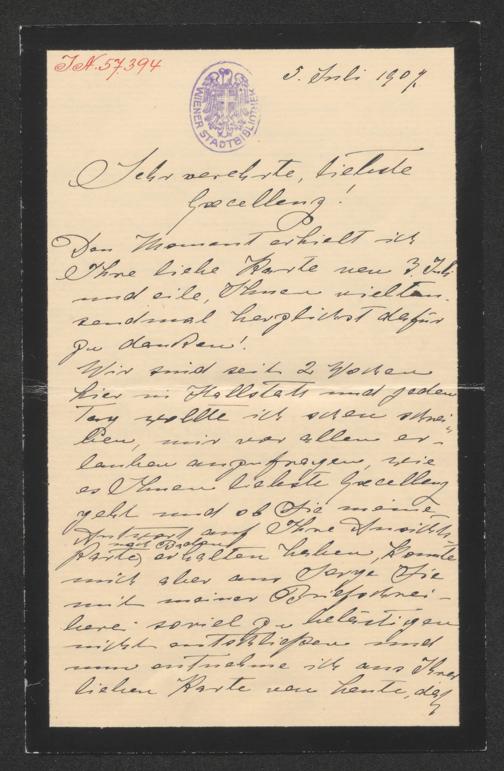 I.N. 57394
5. Juli 1907.
WIENER STADTBIBLIOTHEK
Sehr verehrte, liebste
Excellenz!
Den Moment erhielt ich
Ihre liebe Karte vom 3. Juli
und eile, Ihnen vieltau-
sendmal herzlichst dafür
zu danken!
Wir sind seit 2 Wochen
hier in Hallstatt und jeden
Tag wollte ich schon schrei-
ben, mir vor allem er-
lauben anzufragen, wie
es Ihnen liebste Excellenz
geht und ob Sie meine
Antwort auf Ihre Ansichts
karte nach Baden erhalten haben, konnte
mich aber aus Sorge Sie
mit meiner Briefschrei-
berei soviel zu belästigen
nicht entschließen und
nun entnehme ich aus Ihrer
lieben Karte von heute, daß